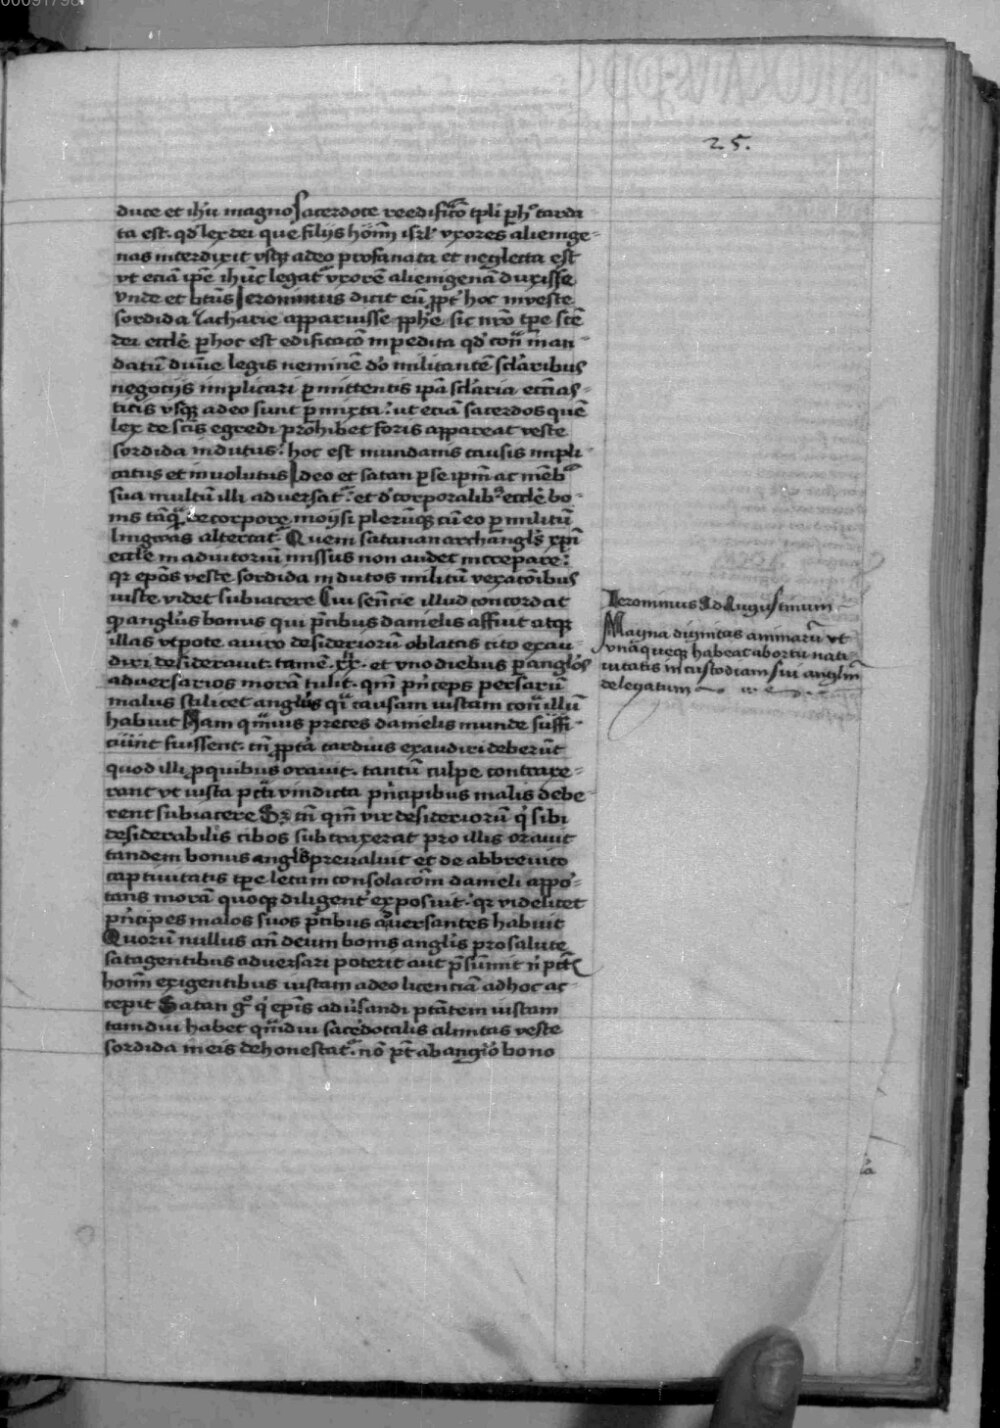 00091798
25.
duce et ih'u magno Sacerdote reedificacō tpli p hoc tarda
ta est. qd' lex dei que filijs hōīm isrl' vxores alienige-
nas interdixit vsq3 adeo profanata et neglecta est
vt eciā ipē ih'us legat' vxorē alienigenā duxisse
vnde et btūs Ieronimus dicit eū ppt' hoc in veste
sordida Zacharie apparuisse pphē. sic nrō tpe scē
dei eccle p hoc est edificacō inpedita qd' con man-
datū diuīe legis neminē do militantē sclaribus
negocijs implicari pmittentis ipā sclaria eccias-
ticis vsq3 adeo sunt pmixta: ut eciā sacerdos quē
lex de scīs egredi prohibet foris appareat veste
sordida indutus: hoc est mundanis causis impli-
catus et inuolutus Ideo et satan p se ipm ac mēb
sua multū illi aduersat': et d' corporalib' eccle bo-
nis tāq̄ de corpore moysi plerūq3 cū eo p militū
lingwas altercat' Quem satanan archangls xpi
eccle in adiutoriū missus non audet increpare:
qr epōs veste sordida indutos militū vexacōibus
iuste videt subiacere Cui sentēcie illud concordat
qp angl'us bonus qui p̄cibus danielis affuit atq3
illas vtpote a viro desideriorū oblatas cito exau
diri desiderauit. tamē. xx. et vno diebus p angl'os
aduersarios morā tulit. qm p̄nceps persarū
malus scilicet angl'us q̄ causam iustam con illū
habuit Nam q̄muis preces danielis munde suffi-
ciūnt fuissent. tn̄ ppt'a tardius exaudiri deberūt
quod illi p quibus orauit. tantū culpe contraxe-
rant vt iusta pcti vindicta p̄ncipibus malis debe-
rent subiacere S3 tn̄ qm vir desideriorū q' sibi
desiderabiles cibos subtraxerat pro illis orauit
tandem bonus angl's preualuit et de abbreuito
captiuitatis tpe letam consolacōm danieli appo-
tans morā quoq3 diligent' exposuit: qr videlicet
p̄ncipes malos suos p̄cibus aduersantes habuit
Quorū nullus an deum bonis angl'is pro salute
satagentibus aduersari poterit aut p̄sumit n' pctis
hōīm exigentibus iustam adeo licenciā ad hoc ac-
cepit Satan g° q' ep̄is adu'sandi ptātem iustam
tamdiu habet q̄mdiu sacedotalis almitas veste
sordida in eis dehonestat'. nō pt ab angl'o bono
Ieronimus Ad Augustinum
Magna dignitas animarū vt
vnaqueq3 habeat ab ortu nati-
uitatis in custodiam sui anglm
delegatum